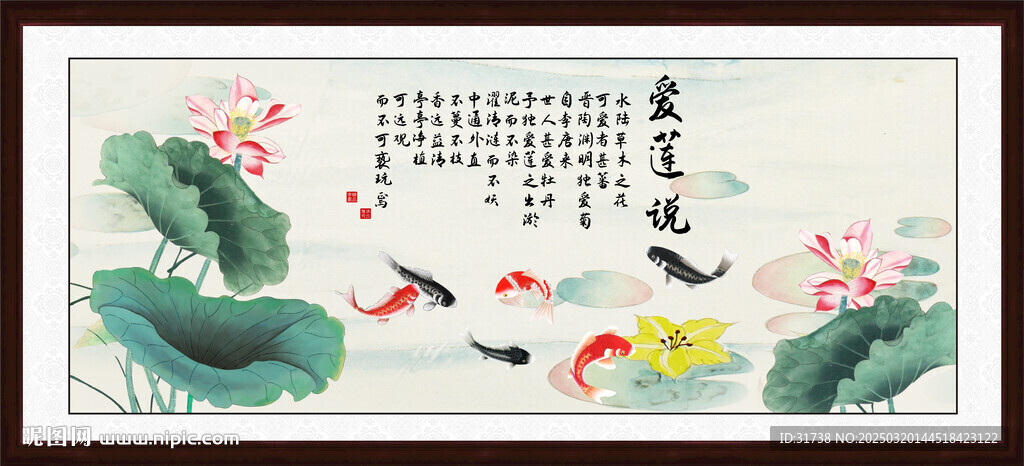 爱莲说
水陆草木之花
可爱者甚蕃
晋陶渊明独爱菊
自李唐来
世人甚爱牡丹
予独爱莲之出淤
泥而不染
濯清涟而不妖
中通外直
不蔓不枝
香远益清
亭亭净植
可远观
而不可亵玩焉
昵图网 www.nipic.com
ID:31738 NO:20250320144518423122